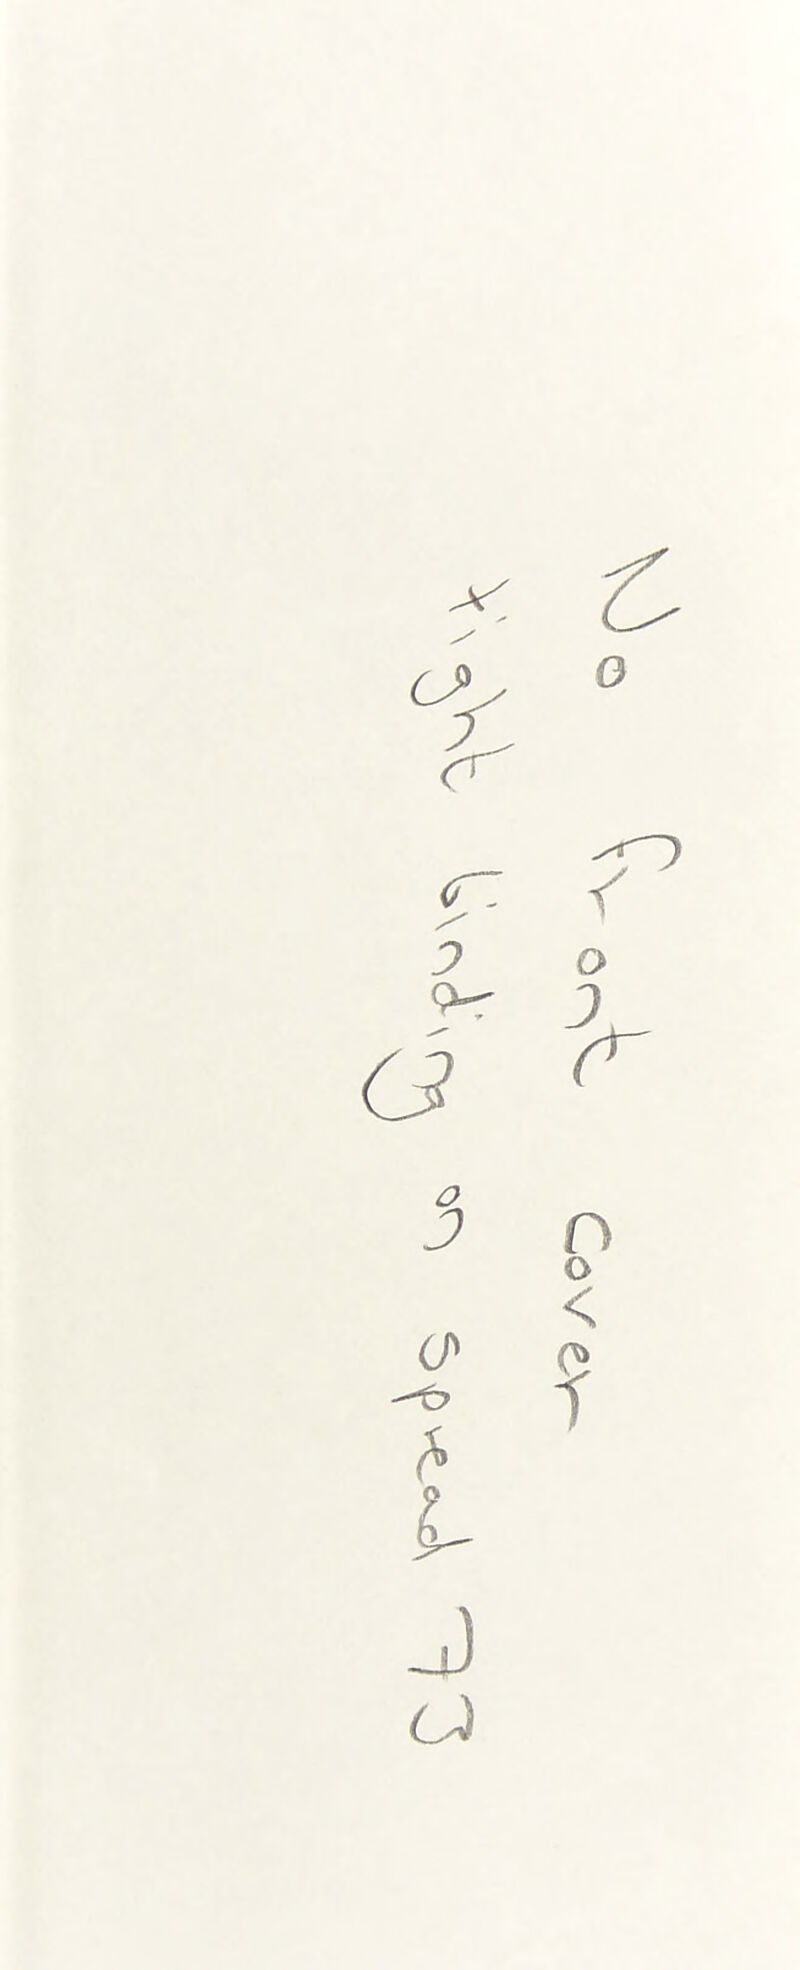 No front cover
tight binding on spread 73